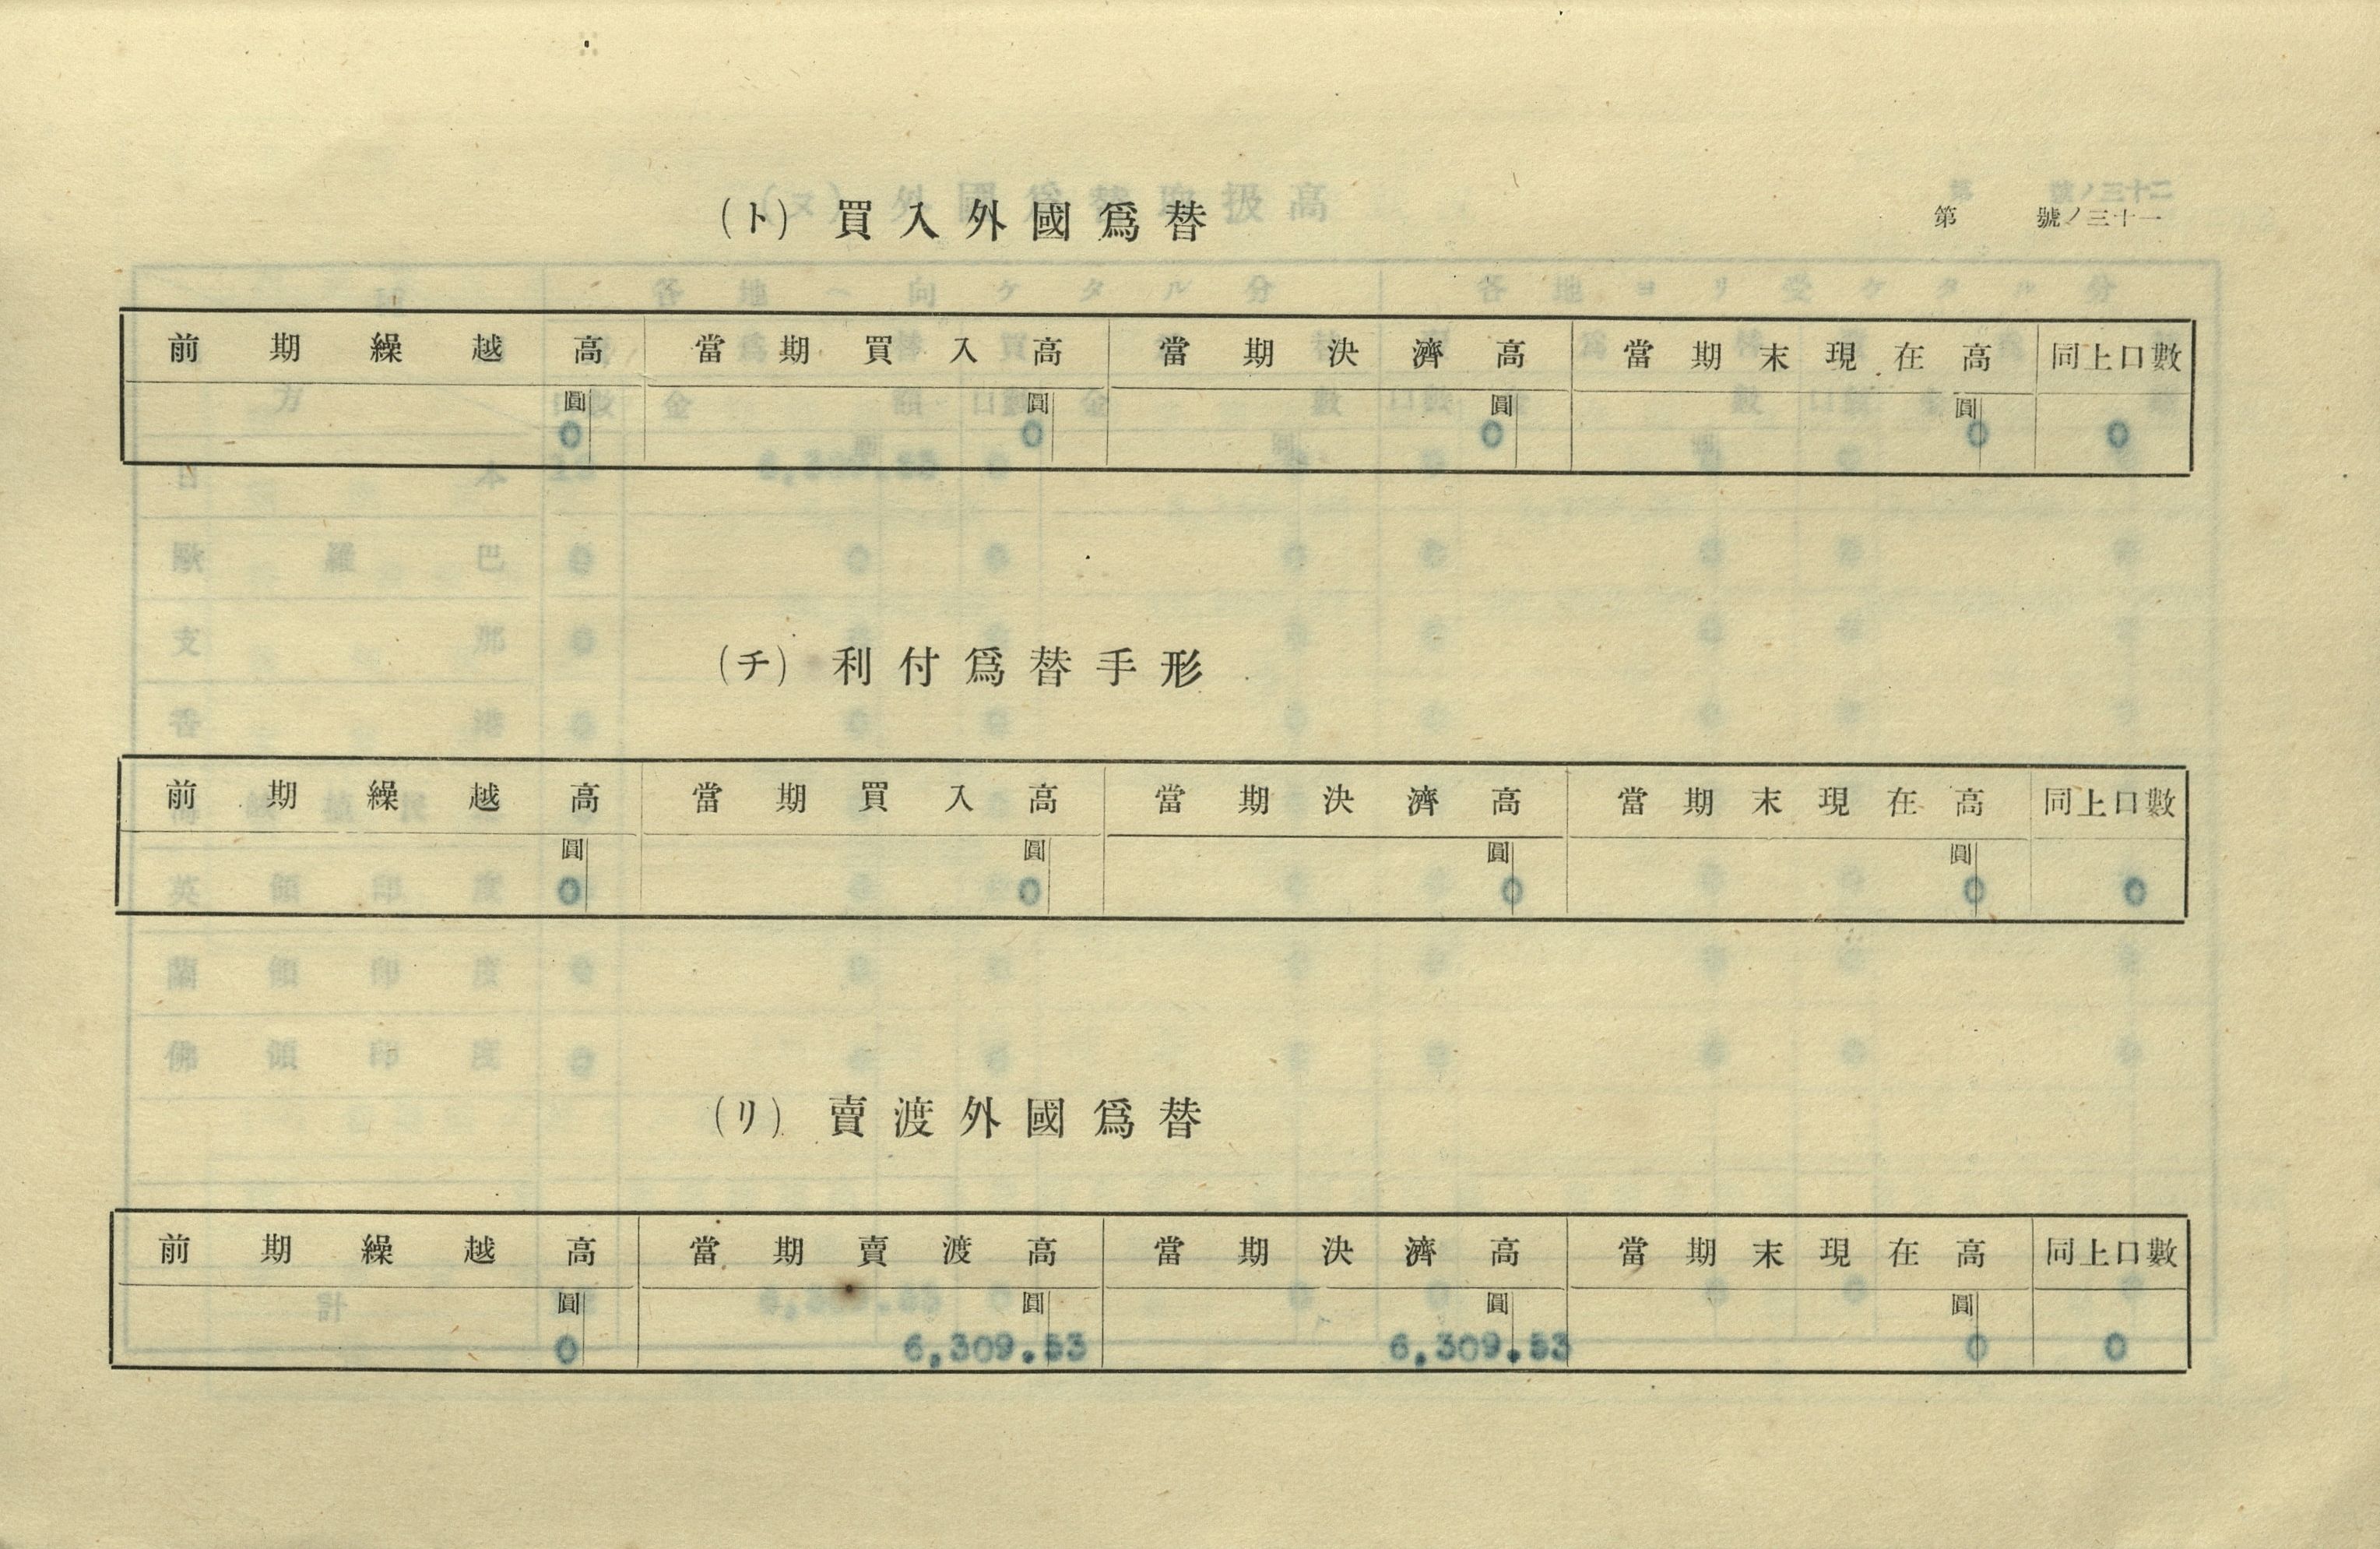 第 號ノ三十一
(ト) 買入外國爲替
前期繰越高 當期買入高 當期決濟高 當期末現在高 同上口數
圓 圓 圓 圓
0 0 0 0 0
(チ) 利付爲替手形
前期繰越高 當期買入高 當期決濟高 當期末現在高 同上口數
圓 圓 圓 圓
0 0 0 0 0
(リ) 賣渡外國爲替
前期繰越高 當期賣渡高 當期決濟高 當期末現在高 同上口數
圓 圓 圓 圓
0 6,309.53 6,309.53 0 0